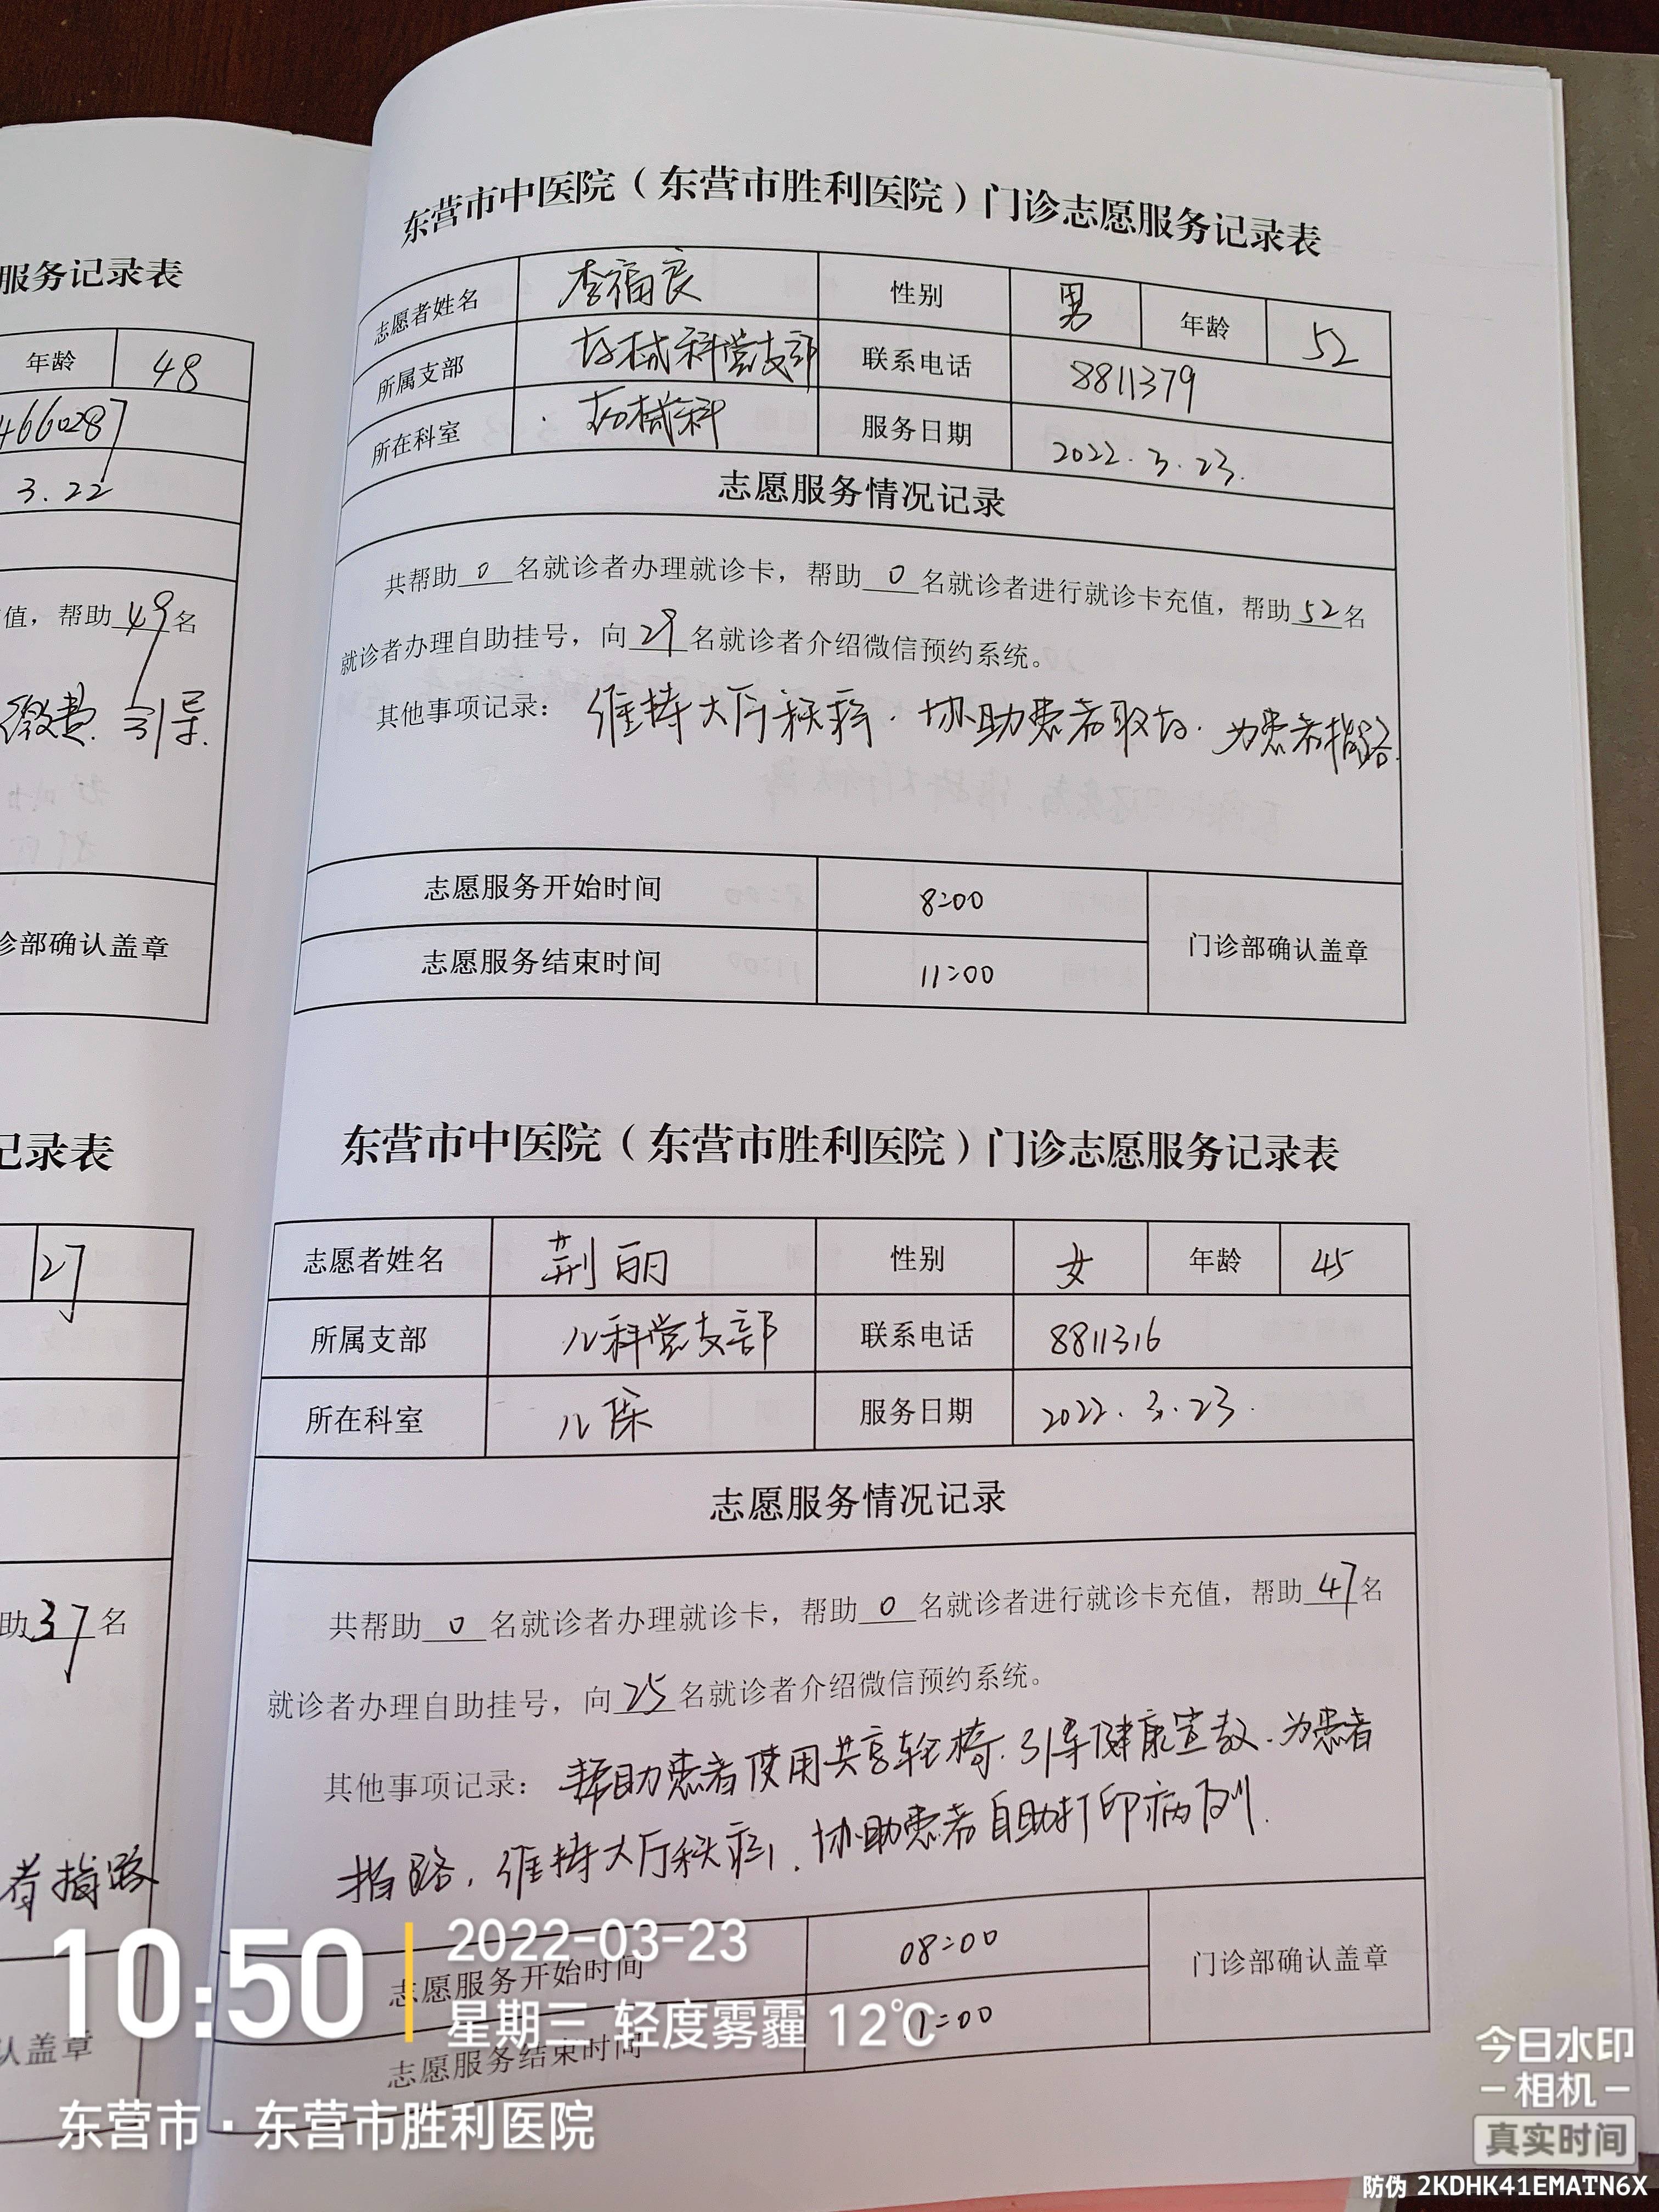 服务记录表
年龄 48
4660287
3.22
值，帮助49名
缴费 引导.
诊部确认盖章
记录表
27
助37名
者指路
认盖章
东营市中医院（东营市胜利医院）门诊志愿服务记录表
志愿者姓名 李福良 性别 男 年龄 52
所属支部 药械科党支部 联系电话 8811379
所在科室 药械科 服务日期 2022.3.23.
志愿服务情况记录
共帮助 0 名就诊者办理就诊卡，帮助 0 名就诊者进行就诊卡充值，帮助52名
就诊者办理自助挂号，向 29 名就诊者介绍微信预约系统。
其他事项记录： 维持大厅秩序. 协助患者取药. 为患者指路.
志愿服务开始时间 8:00
门诊部确认盖章
志愿服务结束时间 11:00
东营市中医院（东营市胜利医院）门诊志愿服务记录表
志愿者姓名 荆丽 性别 女 年龄 45
所属支部 儿科党支部 联系电话 8811316
所在科室 儿保 服务日期 2022.3.23.
志愿服务情况记录
共帮助 0 名就诊者办理就诊卡，帮助 0 名就诊者进行就诊卡充值，帮助 47名
就诊者办理自助挂号，向 25 名就诊者介绍微信预约系统。
其他事项记录： 帮助患者使用共享轮椅. 引导健康宣教. 为患者
指路，维持大厅秩序. 协助患者自助打印病例.
志愿服务开始时间 08:00
门诊部确认盖章
志愿服务结束时间 11:00
10:50
2022-03-23
星期三 轻度雾霾 12℃
东营市·东营市胜利医院
今日水印
-相机-
真实时间
防伪 2KDHK41EMATN6X